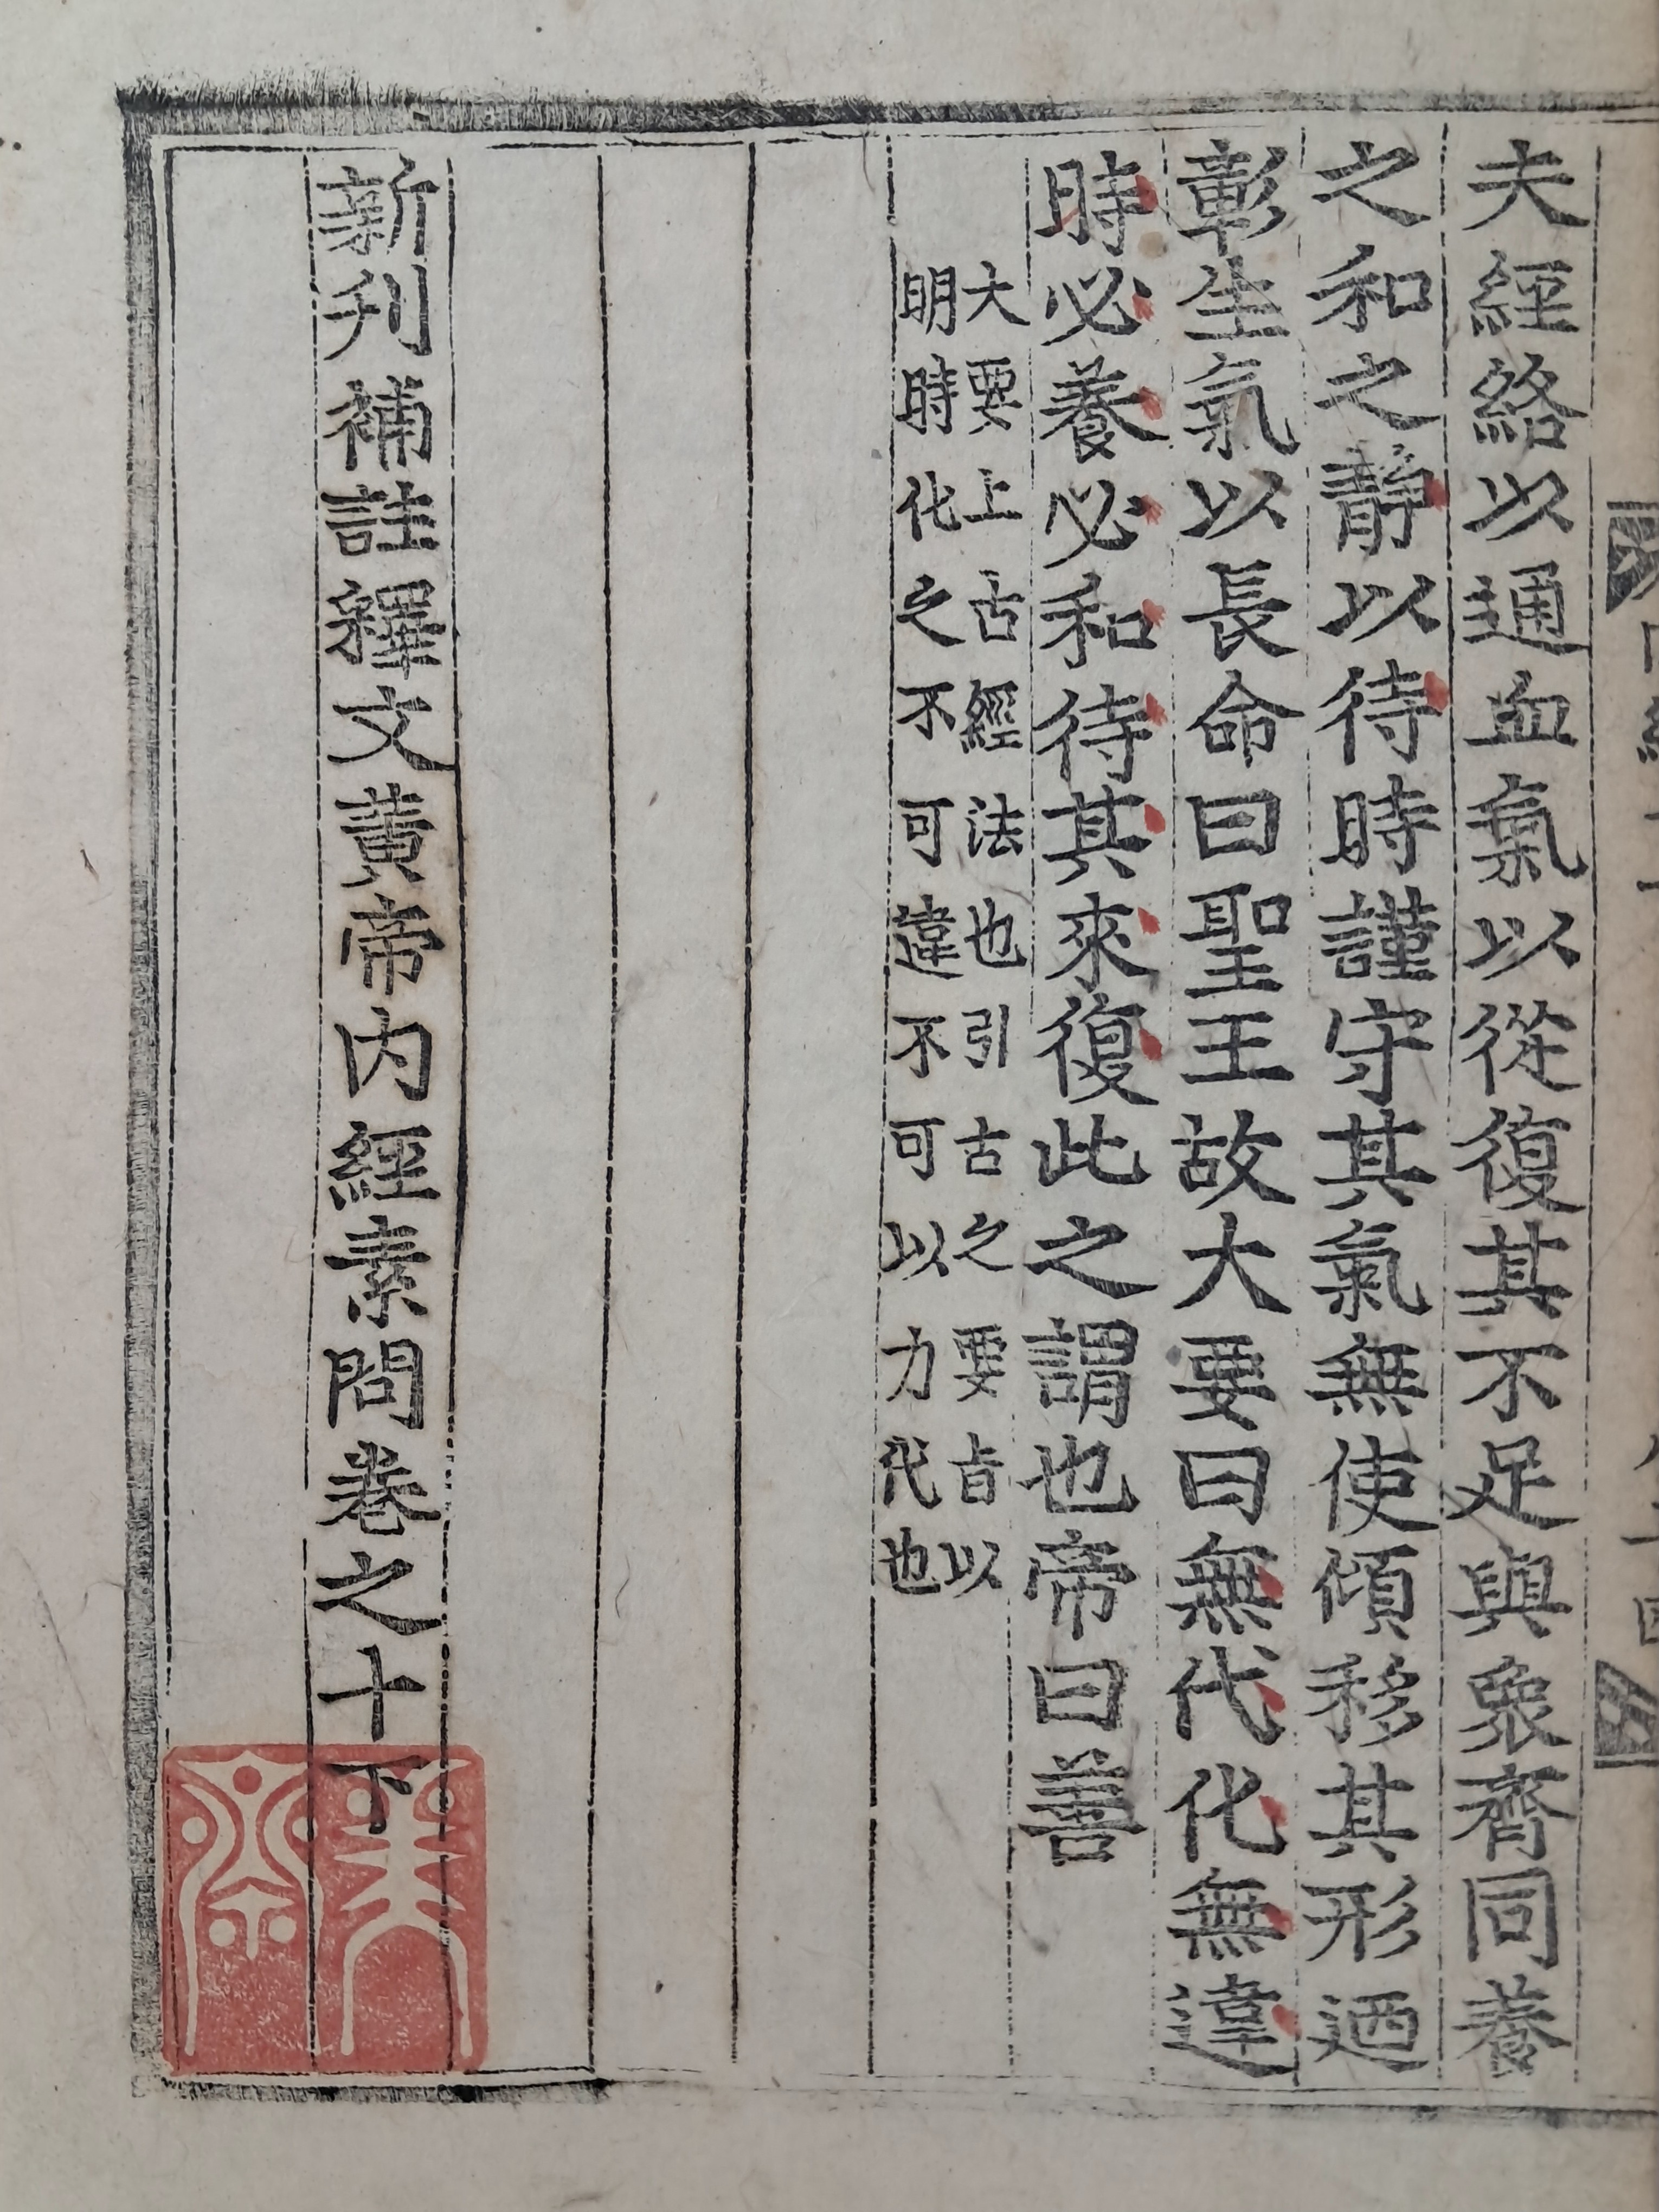 夫經絡以通血氣以從復其不足與衆齊同養
之和之靜以待時謹守其氣無使傾移其形迺
彰生氣以長命曰聖王故大要曰無代化無違
時必養必和待其來復此之謂也帝曰善
大要上古經法也引古之要旨以
明時化之不可違不可以力代也
新刋補註釋文黃帝内經素問卷之十下